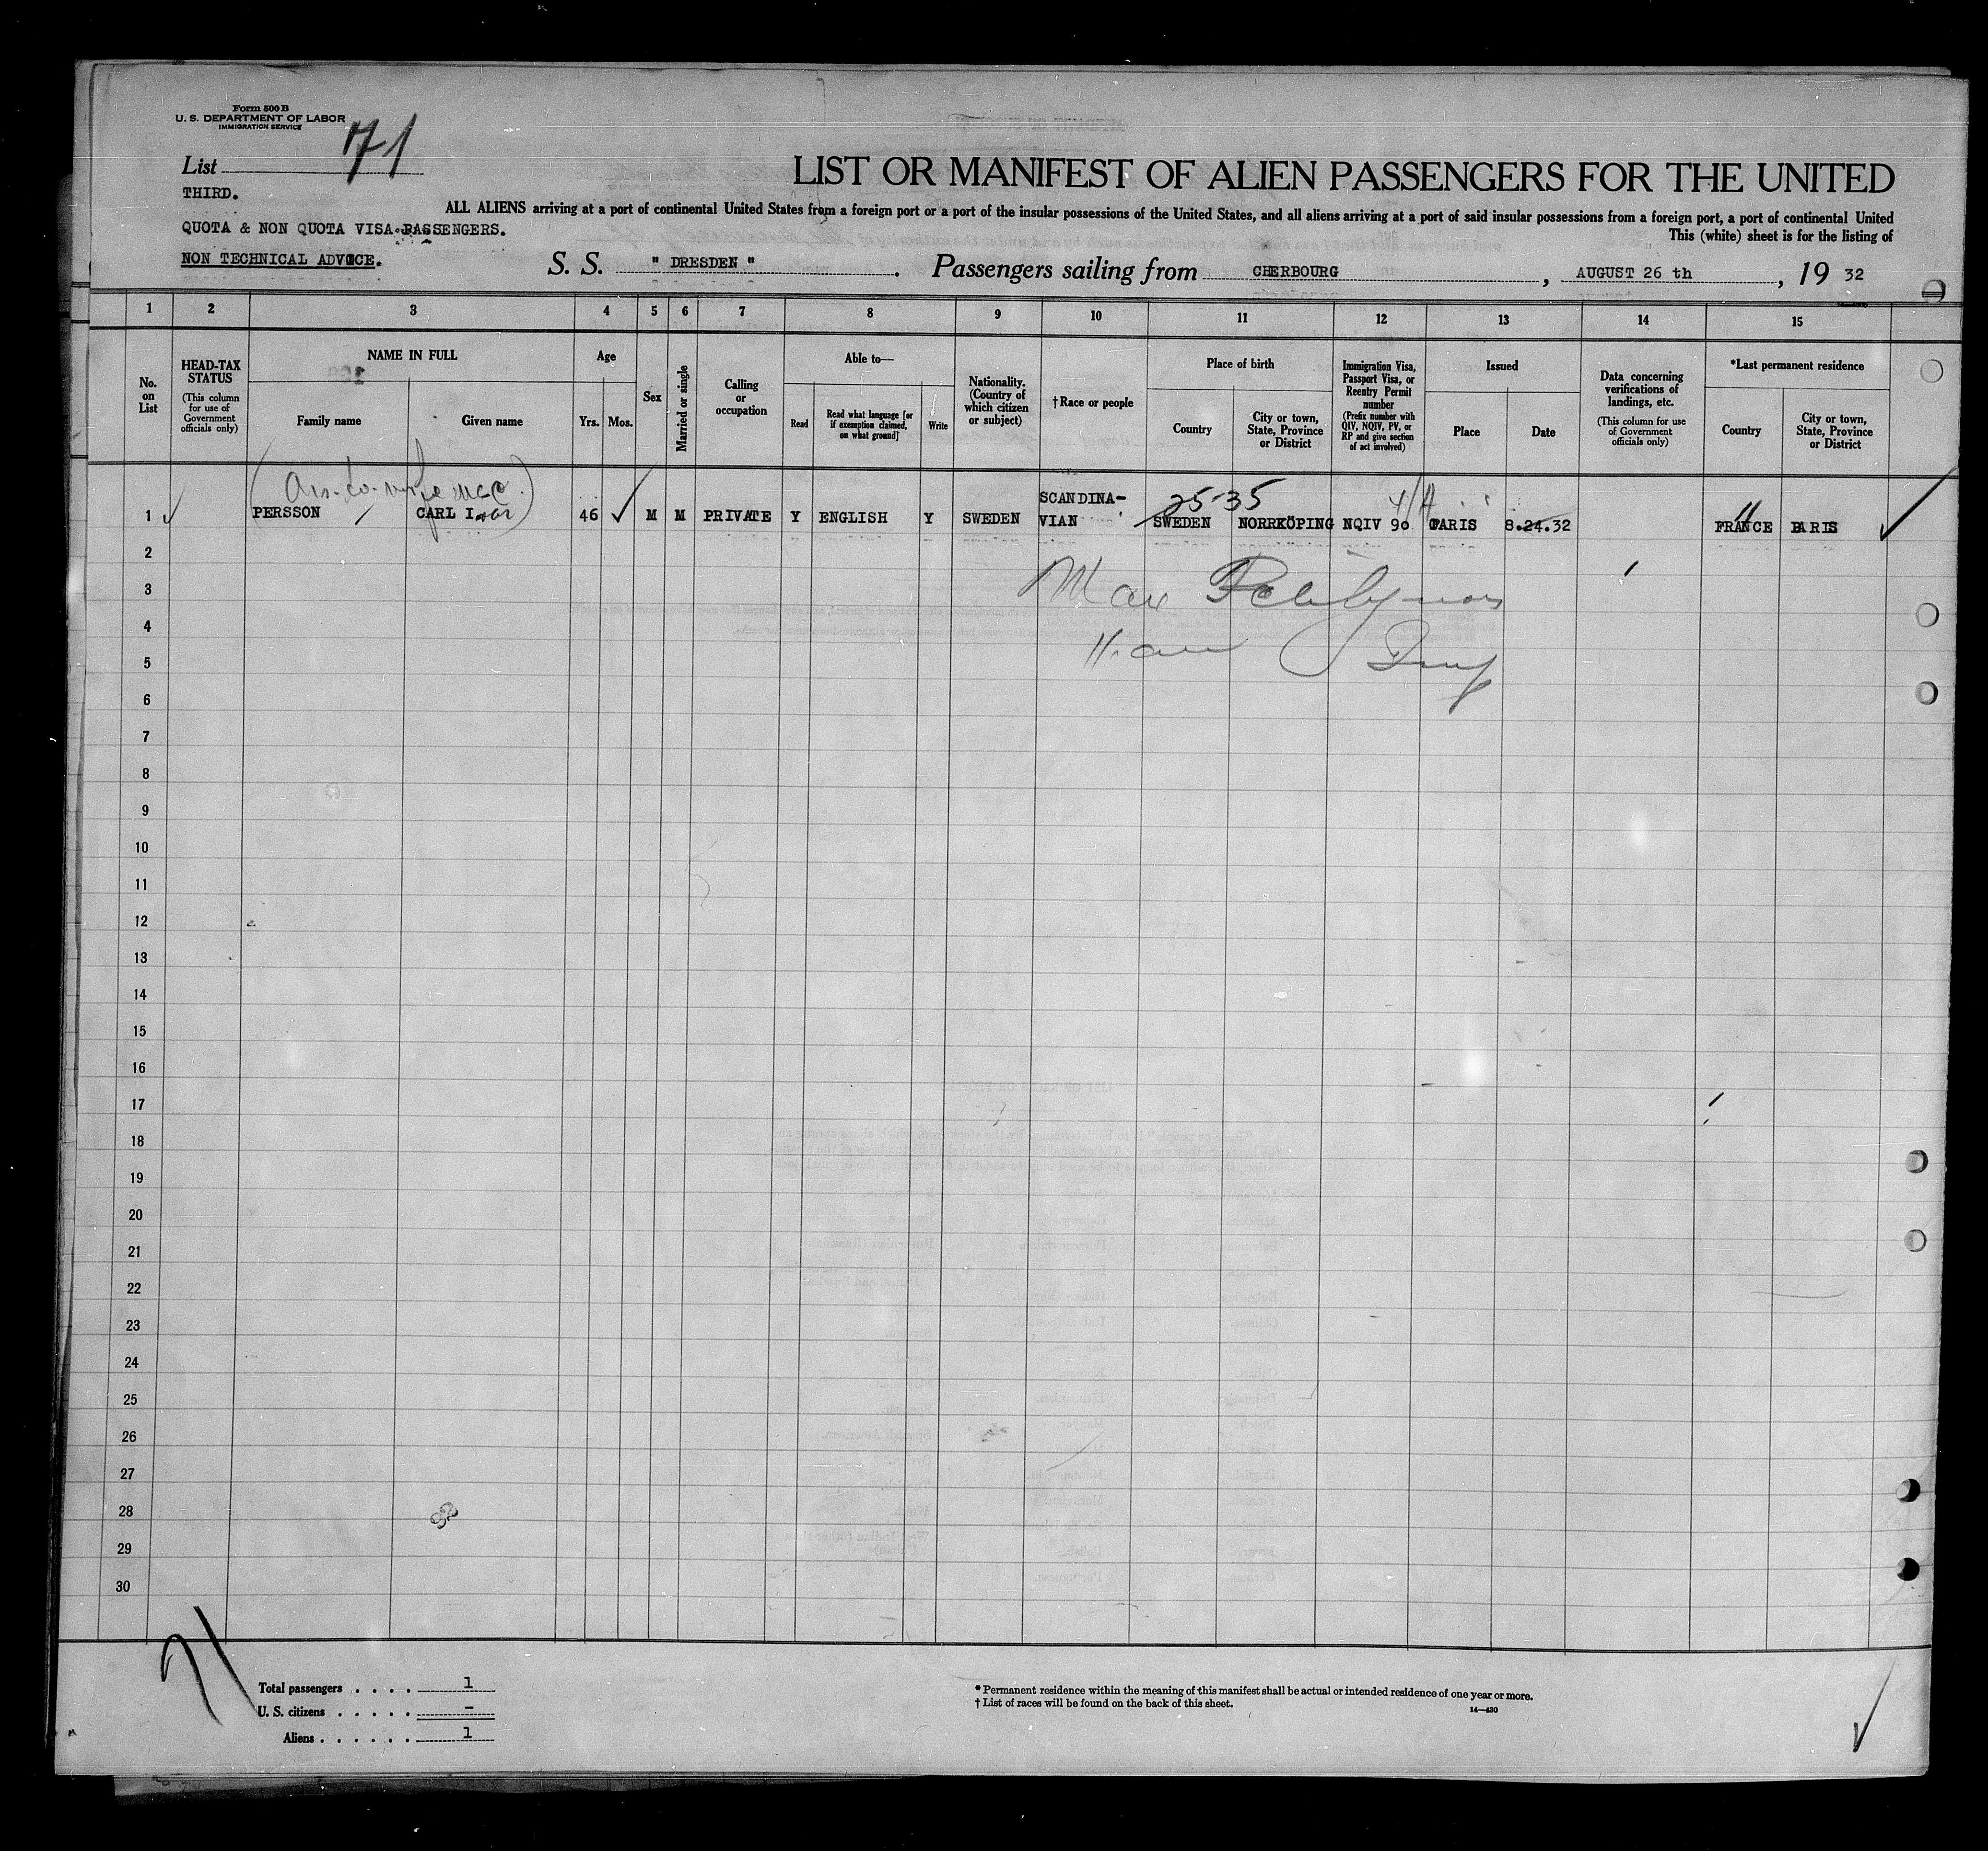 Form 500 B
U. S. DEPARTMENT OF LABOR
IMMIGRATION SERVICE
List 71
THIRD.
QUOTA & NON QUOTA VISA PASSENGERS.
NON TECHNICAL ADVICE.
LIST OR MANIFEST OF ALIEN PASSENGERS FOR THE UNITED
ALL ALIENS arriving at a port of continental United States from a foreign port or a port of the insular possessions of the United States, and all aliens arriving at a port of said insular possessions from a foreign port, a port of continental United
This (white) sheet is for the listing of
S. S. " DRESDEN " . Passengers sailing from CHERBOURG , AUGUST 26 th , 19 32
1 2 3 4 5 6 7 8 9 10 11 12 13 14 15
No. on List
HEAD-TAX STATUS
(This column for use of Government officials only)
NAME IN FULL
Family name
Given name
Age
Yrs.
Mos.
Sex
Married or single
Calling or occupation
Able to—
Read
Read what language [or if exemption claimed, on what ground]
Write
Nationality. (Country of which citizen or subject)
†Race or people
Place of birth
Country
City or town, State, Province or District
Immigration Visa, Passport Visa, or Reentry Permit number
(Prefix number with QIV, NQIV, PV, or RP and give section of act involved)
Issued
Place
Date
Data concerning verifications of landings, etc.
(This column for use of Government officials only)
*Last permanent residence
Country
City or town, State, Province or District
25-35
1 PERSSON CARL I 46 M M PRIVATE Y ENGLISH Y SWEDEN SCANDINA-VIAN SWEDEN NORRKÖPING NQIV 90 PARIS 8.24.32 FRANCE PARIS
2
3
4
5
6
7
8
9
10
11
12
13
14
15
16
17
18
19
20
21
22
23
24
25
26
27
28
29
30
71
Total passengers . . . . 1
U. S. citizens . . . . . -
Aliens . . . . . . 1
* Permanent residence within the meaning of this manifest shall be actual or intended residence of one year or more.
† List of races will be found on the back of this sheet.
14—430